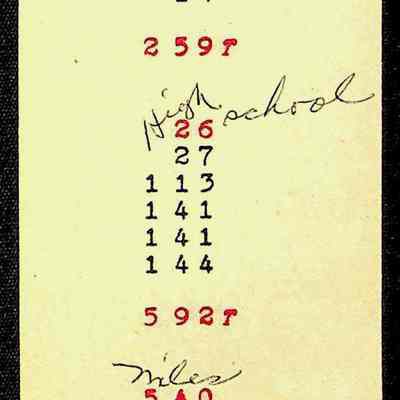 259T
High school
26
27
113
141
141
144
592T
Niles
540